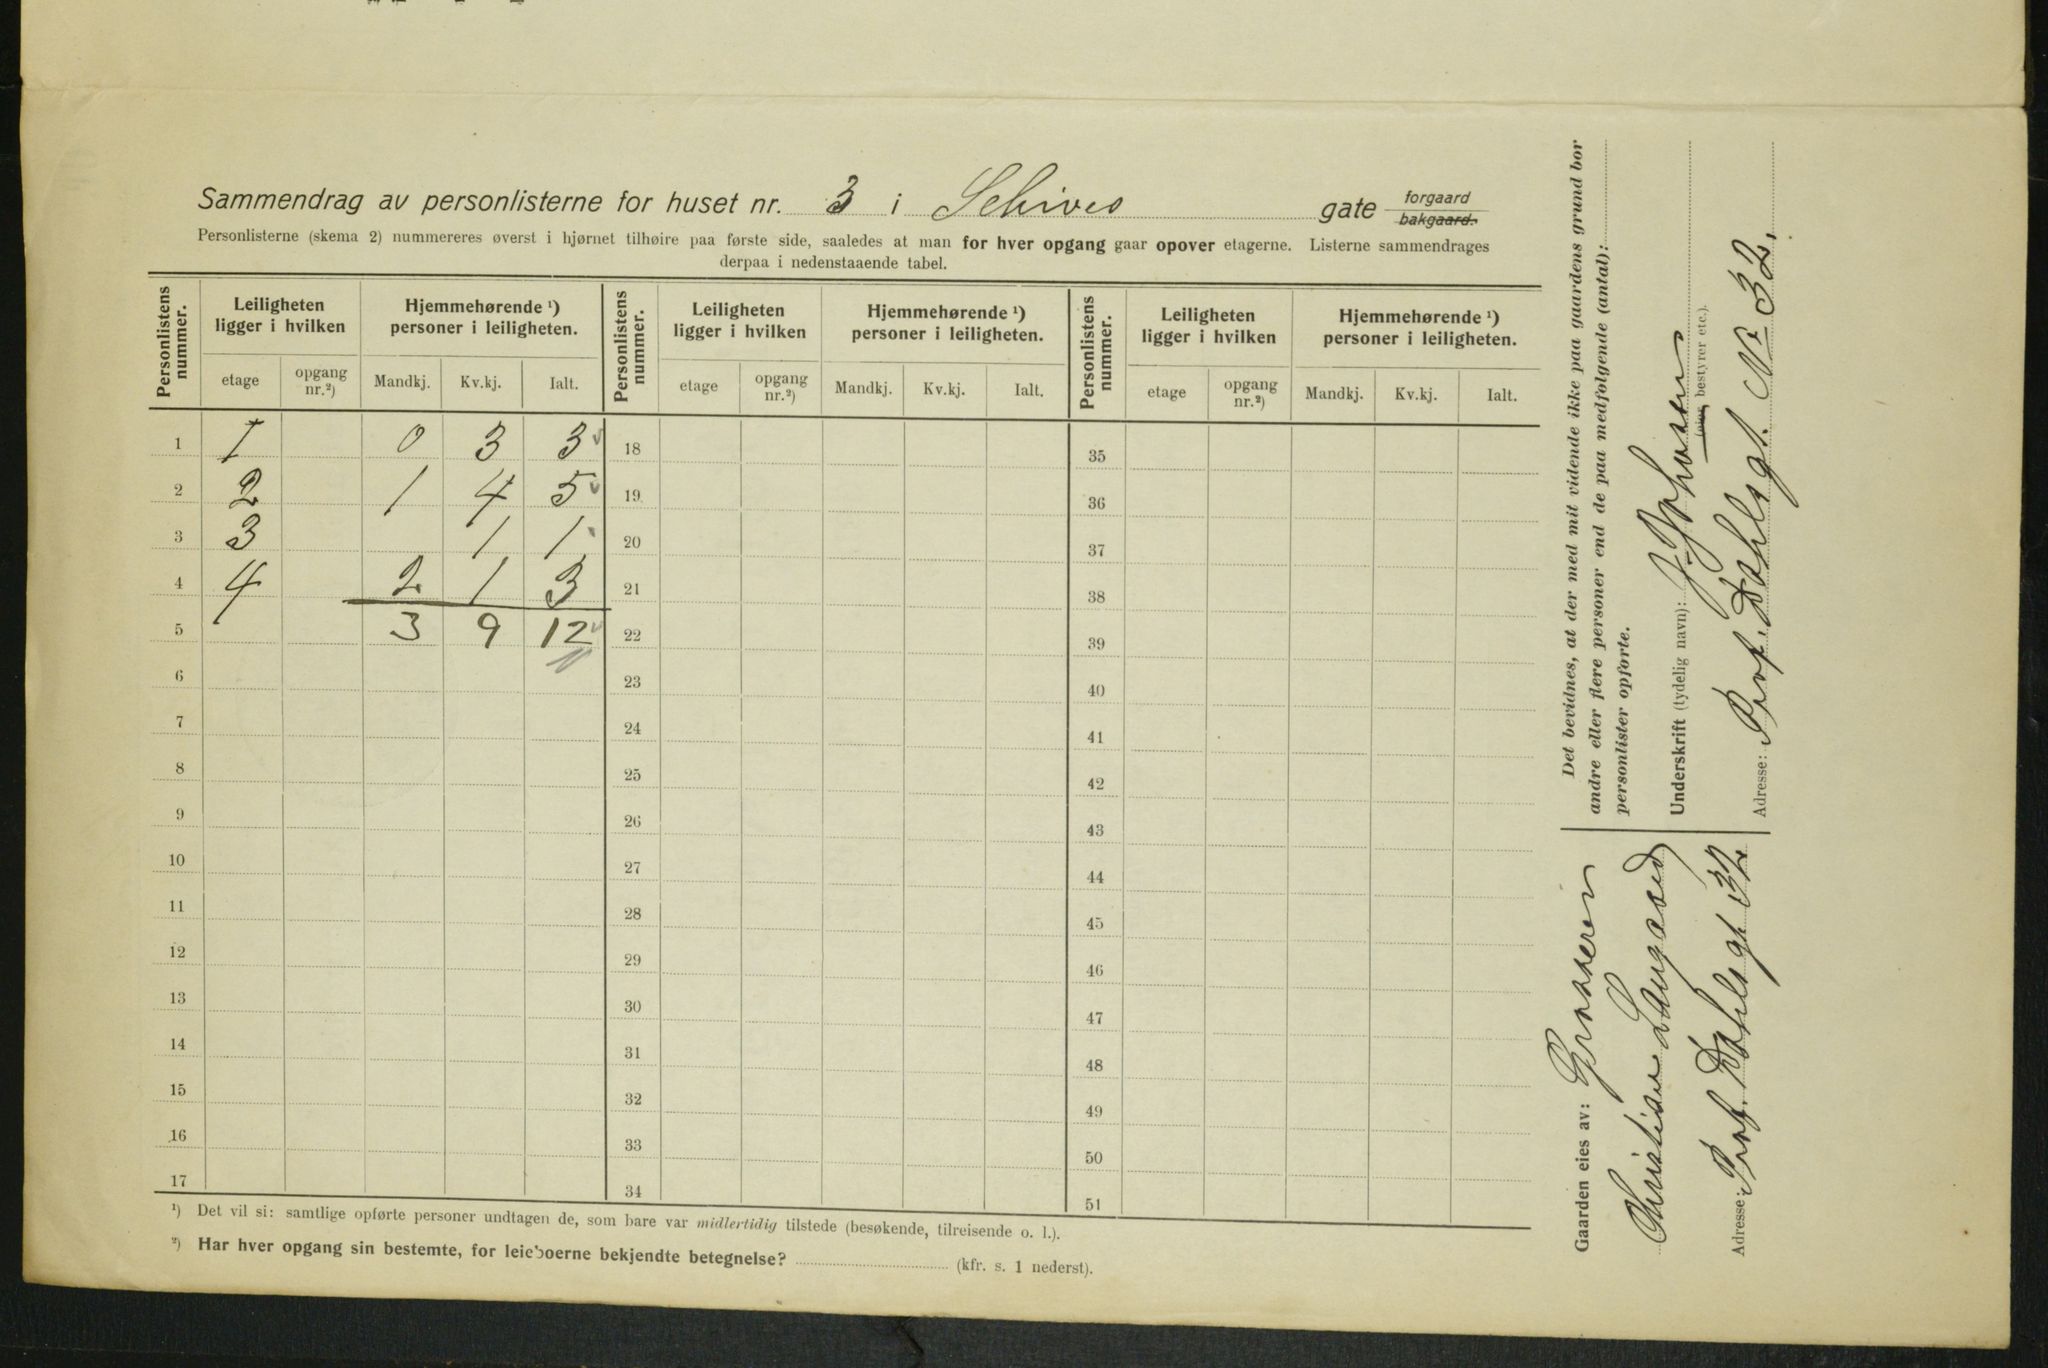 Sammendrag av personlisterne for huset nr. 3 i Schives gate forgaard bakgaard.
Personlisterne (skema 2) nummereres øverst i hjørnet tilhøire paa første side, saaledes at man for hver opgang gaar opover etagerne. Listerne sammendrages
derpaa i nedenstaaende tabel.
Personlistens nummer. Leiligheten ligger i hvilken Hjemmehørende ¹) personer i leiligheten. Personlistens nummer. Leiligheten ligger i hvilken Hjemmehørende ¹) personer i leiligheten. Personlistens nummer. Leiligheten ligger i hvilken Hjemmehørende ¹) personer i leiligheten.
etage opgang nr.²) Mandkj. Kv.kj. Ialt. etage opgang nr.²) Mandkj. Kv.kj. Ialt. etage opgang nr.²) Mandkj. Kv.kj. Ialt.
1 1 0 3 3 18 35
2 2 1 4 5 19 36
3 3 1 1 20 37
4 4 2 1 3 21 38
5 3 9 12 22 39
6 23 40
7 24 41
8 25 42
9 26 43
10 27 44
11 28 45
12 29 46
13 30 47
14 31 48
15 32 49
16 33 50
17 34 51
¹) Det vil si: samtlige opførte personer undtagen de, som bare var midlertidig tilstede (besøkende, tilreisende o. l.).
²) Har hver opgang sin bestemte, for leieboerne bekjendte betegnelse? (kfr. s. 1 nederst).
Det bevidnes, at der med mit vidende ikke paa gaardens grund bor
andre eller flere personer end de paa medfølgende (antal):
personlister opførte.
Underskrift (tydelig navn): J. Johnsen
(eier, bestyrer etc.).
Adresse: Prof. Dahlsgt. Nr 32.
Gaarden eies av: Grosserer
Christian Langaard
Adresse: Prof. Dahlsgt 32